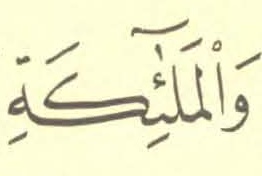 وَالْمَلَٰٓئِكَةِ